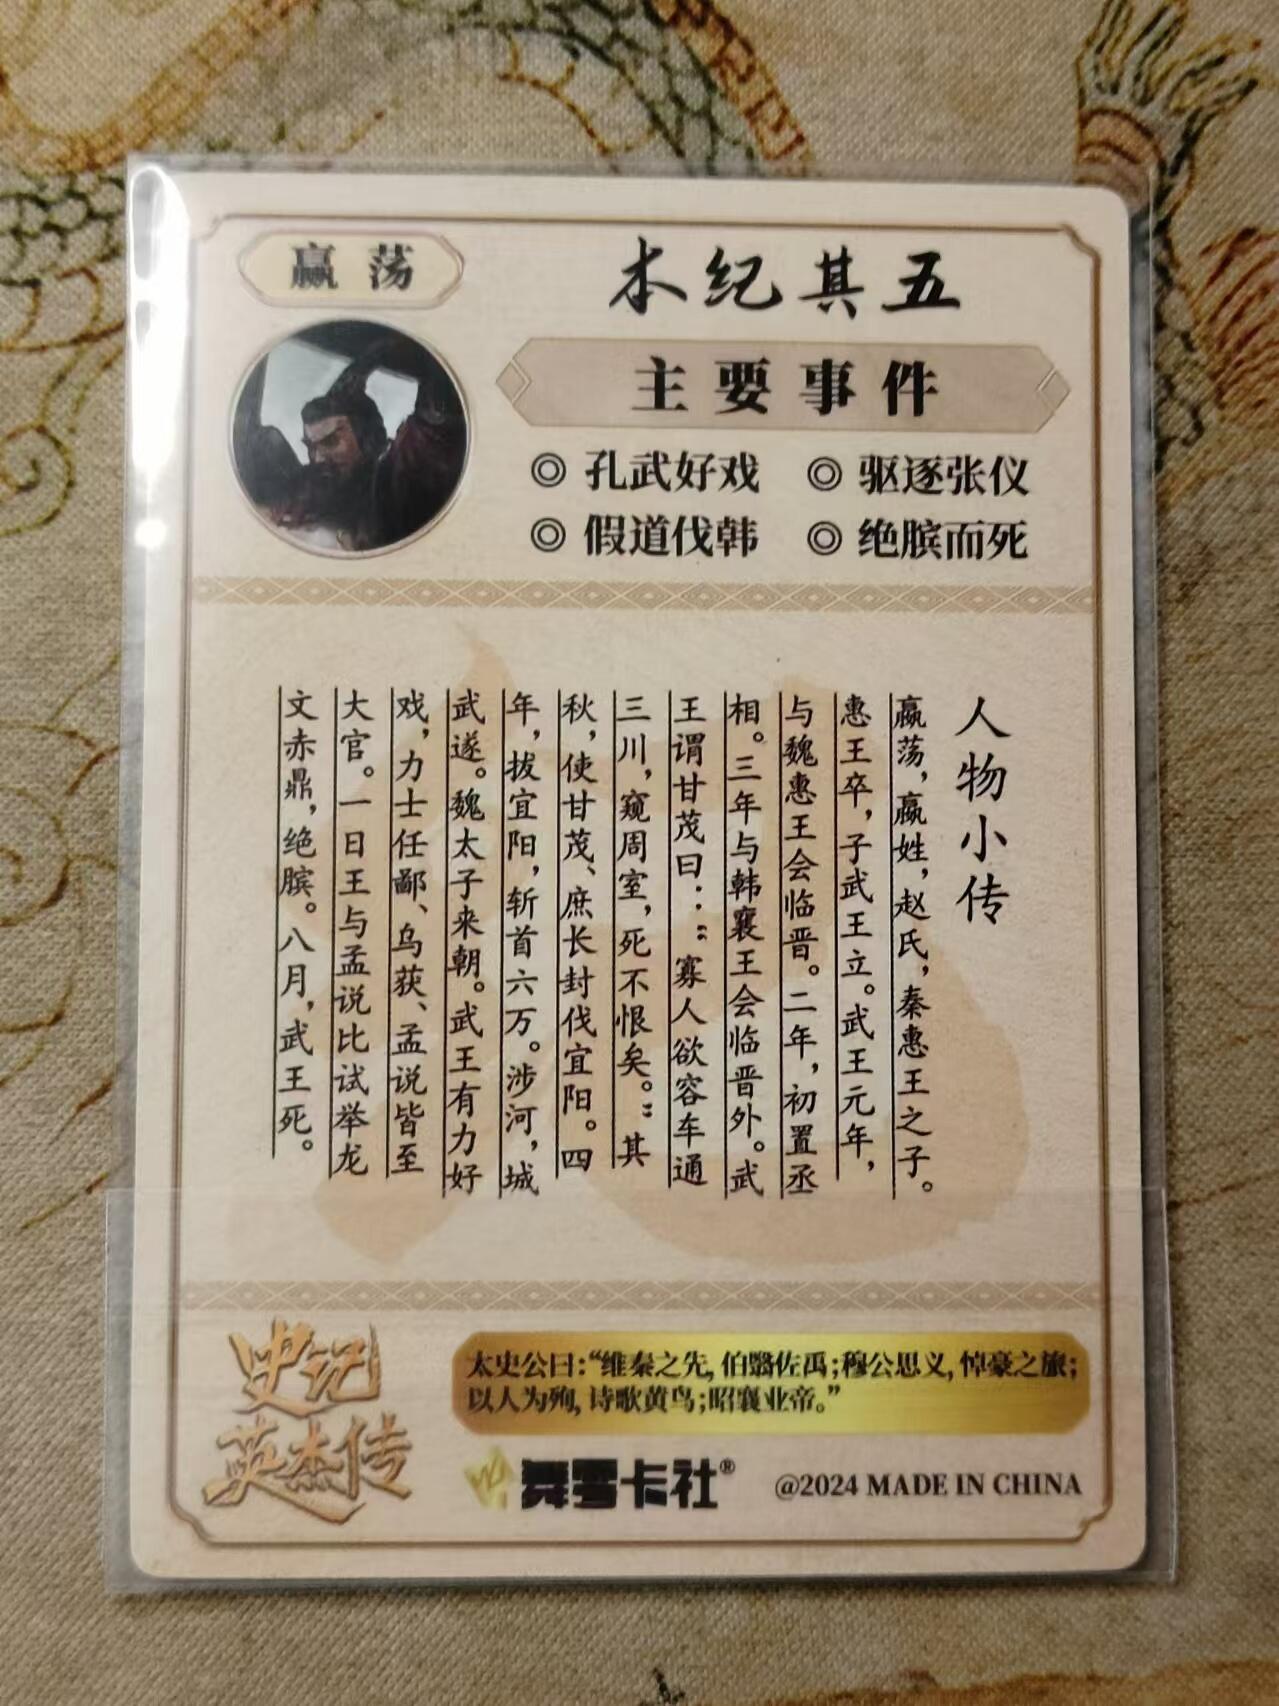 嬴荡
本纪其五
主要事件
◎ 孔武好戏 ◎ 驱逐张仪
◎ 假道伐韩 ◎ 绝膑而死
人物小传
嬴荡，嬴姓，赵氏，秦惠王之子。
惠王卒，子武王立。武王元年，
与魏惠王会临晋。二年，初置丞
相。三年与韩襄王会临晋外。武
王谓甘茂曰：“寡人欲容车通
三川，窥周室，死不恨矣。”其
秋，使甘茂、庶长封伐宜阳。四
年，拔宜阳，斩首六万。涉河，城
武遂。魏太子来朝。武王有力好
戏，力士任鄙、乌获、孟说皆至
大官。一日王与孟说比试举龙
文赤鼎，绝膑。八月，武王死。
史记
英杰传
太史公曰：“维秦之先，伯翳佐禹；穆公思义，悼豪之旅；
以人为殉，诗歌黄鸟；昭襄业帝。”
舞雩卡社®
@2024 MADE IN CHINA